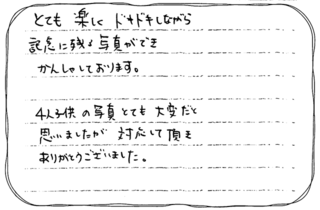 とても 楽しく ドキドキしながら
記念に残る写真ができ
かんしゃしております。
4人子供の写真とても大変だと
思いましたが 対応して頂き
ありがとうございました。